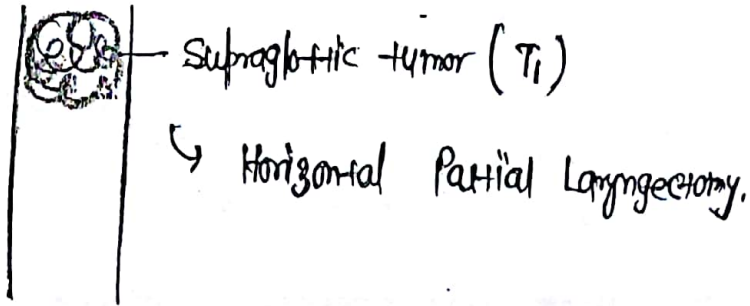 Supraglottic tumor (T₁)
↳ Horizontal Partial Laryngectomy.